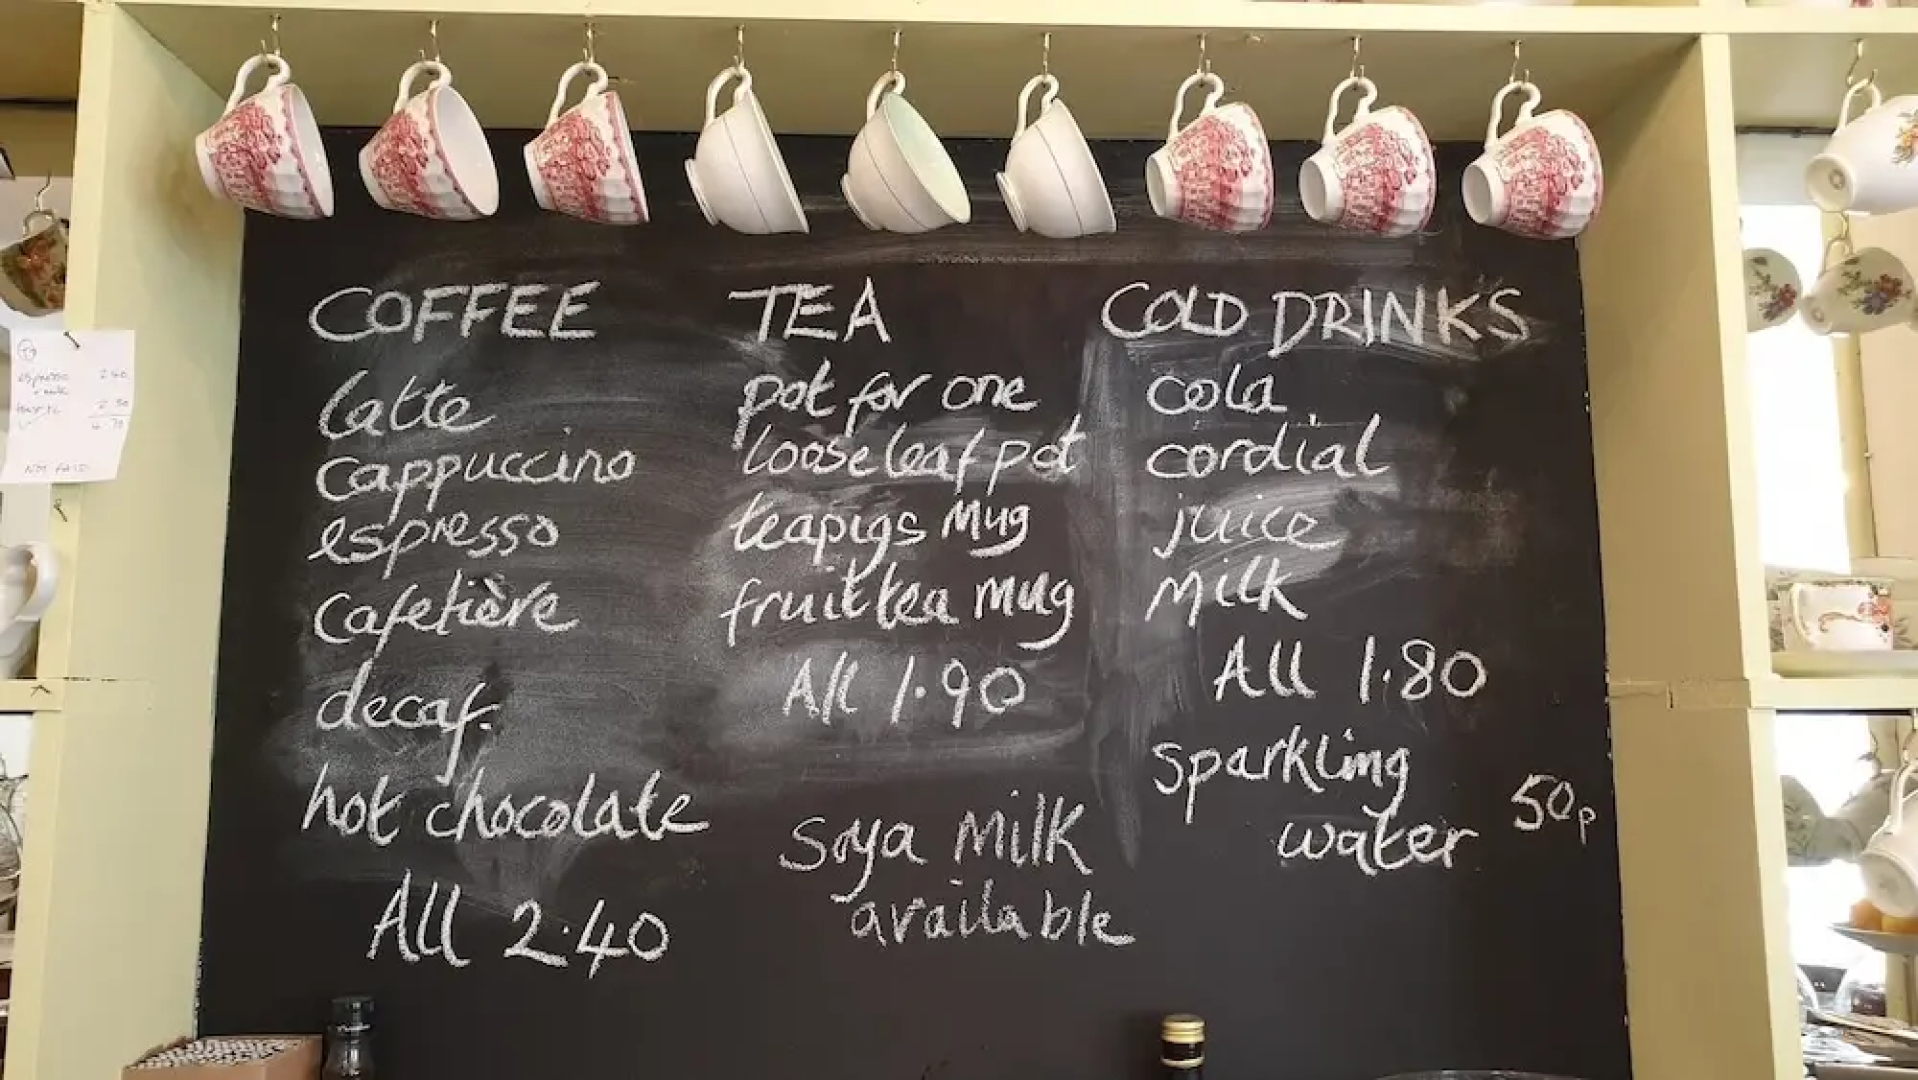 COFFEE
latte
cappuccino
espresso
cafetière
decaf.
hot chocolate
All 2.40
TEA
pot for one
loose leaf pot
teapigs mug
fruit tea mug
All 1.90
soya milk
available
COLD DRINKS
cola
cordial
juice
milk
All 1.80
sparkling
water 50p
espresso 2.40
NOT PAID